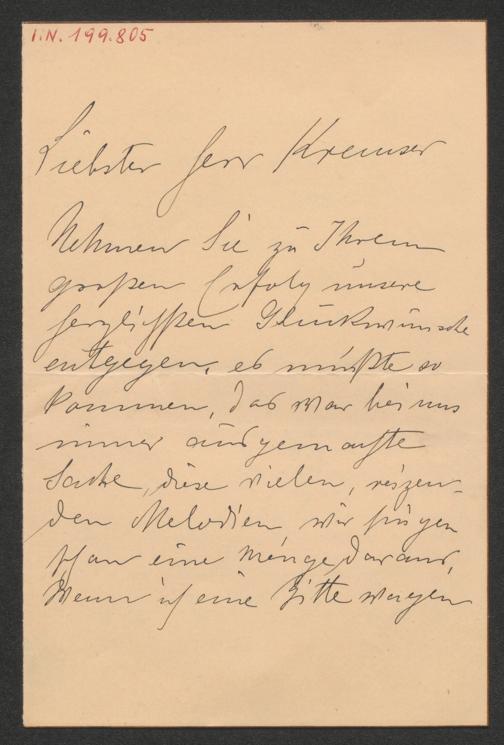 I.N. 199.805
Liebster Herr Kremser
Nehmen Sie zu Ihrem
großen Erfolg unsere
herzlichsten Glückwünsche
entgegen, es mußte so
kommen, das war bei uns
immer ausgemachte
Sache, diese vielen, reizen-
den Melodien wir singen
schon eine Menge daraus,
Wenn ich eine Bitte wagen